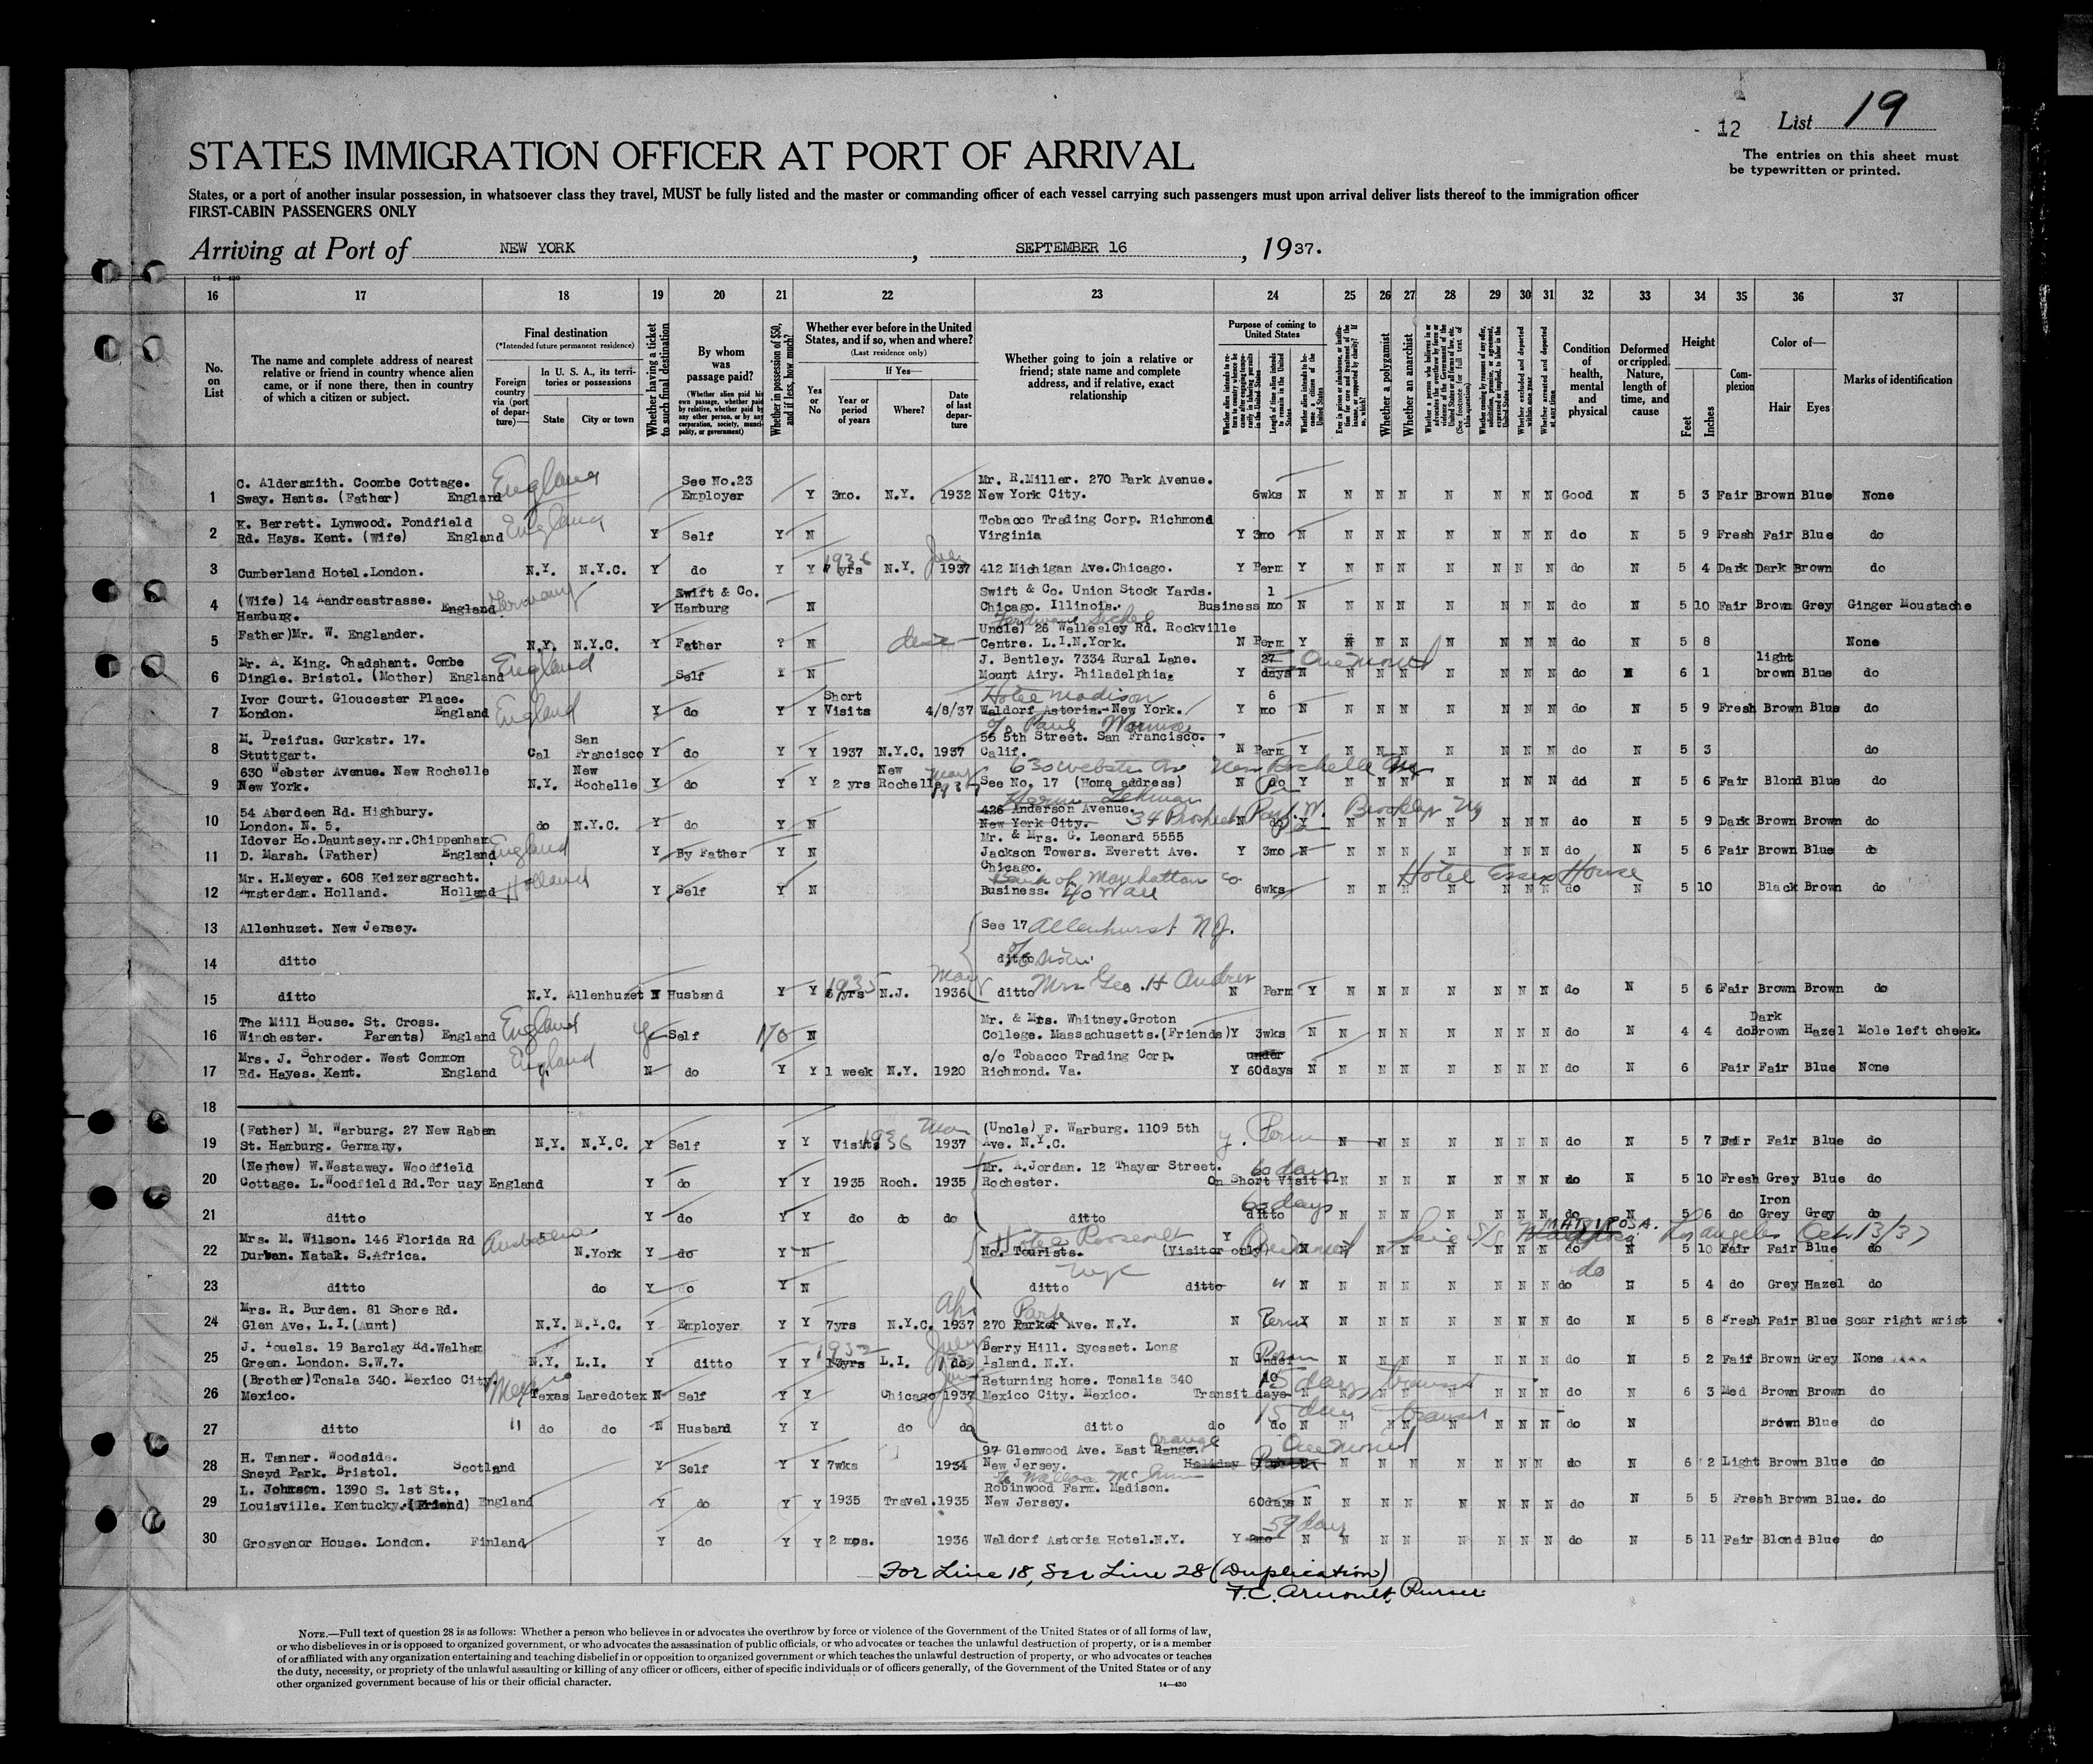 12 List 19
The entries on this sheet must
be typewritten or printed.
STATES IMMIGRATION OFFICER AT PORT OF ARRIVAL
States, or a port of another insular possession, in whatsoever class they travel, MUST be fully listed and the master or commanding officer of each vessel carrying such passengers must upon arrival deliver lists thereof to the immigration officer
FIRST-CABIN PASSENGERS ONLY
Arriving at Port of NEW YORK, SEPTEMBER 16, 1937.
14—430
16 17 18 19 20 21 22 23 24 25 26 27 28 29 30 31 32 33 34 35 36 37
No. on List
The name and complete address of nearest relative or friend in country whence alien came, or if none there, then in country of which a citizen or subject.
Final destination
(*Intended future permanent residence)
Foreign country via (port of departure)—
In U. S. A., its territories or possessions
State City or town
Whether having a ticket to such final destination
By whom was passage paid?
(Whether alien paid his own passage, whether paid by relative, whether paid by any other person, or by any corporation, society, municipality, or government)
Whether in possession of $50, and if less, how much?
Whether ever before in the United States, and if so, when and where?
(Last residence only)
Yes or No
If Yes—
Year or period of years Where? Date of last departure
Whether going to join a relative or friend; state name and complete address, and if relative, exact relationship
Purpose of coming to United States
Whether a polygamist
Whether an anarchist
Condition of health, mental and physical
Deformed or crippled. Nature, length of time, and cause
Height
Feet Inches
Complexion
Color of—
Hair Eyes
Marks of identification
1 C. Aldersmith. Coombe Cottage. See No.23 Mr. R.Miller. 270 Park Avenue.
Sway. Hants. (Father) England England Employer Y 3mo. N.Y. 1932 New York City. 6wks N N N N N N N N Good N 5 3 Fair Brown Blue None
2 K. Berrett. Lynwood. Pondfield England Tobacco Trading Corp. Richmond
Rd. Hays. Kent. (Wife) England Y Self Y N Virginia Y 3mo N N N N N N N N do N 5 9 Fresh Fair Blue do
3 Cumberland Hotel.London. N.Y. N.Y.C. Y do Y Y yrs N.Y. 1937 412 Michigan Ave.Chicago. Y Perm Y N N N N N N N do N 5 4 Dark Dark Brown do
4 (Wife) 14 Aandreastrasse. England Germany Swift & Co. Swift & Co. Union Stock Yards. 1
Hamburg. Y Hamburg N Chicago. Illinois. Business mo N N N N N N N N do N 5 10 Fair Brown Grey Ginger Moustache
5 Father)Mr. W. Englander. Uncle) 26 Wellesley Rd. Rockville
N.Y. N.Y.C. Y Father ? N Centre. L.I.N.York. N Perm Y N N N N N N N do N 5 8 None
6 Mr. A. King. Chadshant. Combe England J. Bentley. 7334 Rural Lane. 27 One month light
Dingle. Bristol. (Mother) England Self N Mount Airy. Philadelphia. Y days N N N N N N N N do N 6 1 brown Blue do
7 Ivor Court. Gloucester Place. England Short Hotel Madison 6
London. England Y do Y Y Visits 4/8/37 Waldorf Astoria.-New York. Y mo N N N N N N N N do N 5 9 Fresh Brown Blue do
8 M. Dreifus. Gurkstr. 17. San c/o Paul 55 5th Street. San Francisco.
Stuttgart. Cal Francisco Y do Y Y 1937 N.Y.C. 1937 Calif. N Perm Y N N N N N N N do N 5 3 do
9 630 Webster Avenue. New Rochelle New New May 630 Webster Av New Rochelle NY
New York. N.Y. Rochelle Y do Y Y 2 yrs Rochelle See No. 17 (Home address) N do Y N N N N N N N do N 5 6 Fair Blond Blue do
10 54 Aberdeen Rd. Highbury. 426 Anderson Avenue. 34 Prospect Park W. Brooklyn NY
London. N. 5. do N.Y.C. Y do Y N New York City. N do Y N N N N N N N do N 5 9 Dark Brown Brown do
11 Idover Ho.Dauntsey.nr.Chippenham England Mr. & Mrs. G. Leonard 5555
D. Marsh. (Father) England Y By Father Y N Jackson Towers. Everett Ave. Y 3mo N N N N N N N N do N 5 6 Fair Brown Blue do
Chicago.
12 Mr. H.Meyer. 608 Keizersgracht. Holland Bank of Manhattan Co Hotel Essex House
Amsterdam. Holland. Holland Y Self Y N Business. 40 Wall 6wks N N N N N N N do N 5 10 Black Brown do
13 Allenhuzet. New Jersey. See 17 Allenhurst N.J.
14 ditto ditto
15 ditto N.Y. Allenhuzet N Husband Y Y yrs 1935 N.J. May 1936 ditto Mrs Geo. H N Perm Y N N N N N N N do N 5 6 Fair Brown Brown do
16 The Mill House. St. Cross. England Mr. & Mrs. Whitney.Groton Dark
Winchester. Parents) England Self 170 N College. Massachusetts.(Friends)Y 3wks N N N N N N N N do N 4 4 do Brown Hazel Mole left cheek.
17 Mrs. J. Schroder. West Common England c/o Tobacco Trading Corp. under
Rd. Hayes. Kent. England N do Y Y 1 week N.Y. 1920 Richmond. Va. Y 60days N N N N N N N N do N 6 Fair Fair Blue None
18
19 (Father) M. Warburg. 27 New Raben May (Uncle) F. Warburg. 1109 5th
St. Hamburg. Germany, N.Y. N.Y.C. Y Self Y Y Visits 1936 1937 Ave. N.Y.C. y. Perm N N N N N N N do N 5 7 Fair Fair Blue do
20 (Nerhew) W.Westaway. Woodfield Mr. A.Jordan. 12 Thayer Street. 60 days
Cottage. L.Woodfield Rd.Tor uay England Y do Y Y 1935 Roch. 1935 Rochester. On Short Visit N N N N N N N do N 5 10 Fresh Grey Blue do
21 ditto Y do Y Y do do do ditto 60 days ditto N N N N N N N do N 5 6 do Iron Grey Grey do
22 Mrs. M. Wilson. 146 Florida Rd Australia Hotel Roosevelt Y S/S MARIPOSA. Los Angeles Oct. 13/37
Durban. Natal. S.Africa. N.York Y do Y N No. Tourists. (Visitor only) One month N N N N N N N N do N 5 10 Fair Fair Blue do
23 ditto do Y do Y N NYC ditto ditto " N N N N N N N N do do N 5 4 do Grey Hazel do
24 Mrs. R. Burden. 81 Shore Rd. Apr Park
Glen Ave. L.I.(Aunt) N.Y. N.Y.C. Y Employer Y Y 7yrs N.Y.C. 1937 270 Parker Ave. N.Y. N Perm Y N N N N N N N do N 5 8 Fresh Fair Blue Scar right wrist
25 J. Youels. 19 Barclay Rd.Walham 1932 July Berry Hill. Syosset. Long Perm
Green. London. S.W.7. N.Y. L.I. Y ditto Y Y 13yrs L.I. do Island. N.Y. N Undef N N N N N N N do N 5 2 Fair Brown Grey None
26 (Brother)Tonala 340. Mexico City. Mexico Returning home. Tonalia 340 15 days transit
Mexico. Texas Laredotex N Self Y Y Chicago 1937 Mexico City. Mexico. Transit days N N N N N N N N do N 6 3 Med Brown Brown do
27 ditto " do do N Husband Y Y do do ditto do 15 days transit do N N N N N N N N do N Brown Blue do
28 H. Tanner. Woodside. 97 Glenwood Ave. East Range. Orange One month
Sneyd Park. Bristol. Scotland Y Self Y Y 7wks 1934 New Jersey. Holiday N N N N N N N do N 6 2 Light Brown Blue do
29 L. Johnson. 1390 S. 1st St., Robinwood Farm. Madison.
Louisville. Kentucky.(Friend) England Y do Y Y 1935 Travel. 1935 New Jersey. 60days N N N N N N N N do N 5 5 Fresh Brown Blue. do
30 Grosvenor House. London. Finland Y do Y Y 2 mos. 1936 Waldorf Astoria Hotel.N.Y. Y 2mo 59 days N N N N N N N N do N 5 11 Fair Blond Blue do
For Line 18, See Line 28 (Duplication)
F.C. Arnoult, Purser
NOTE.—Full text of question 28 is as follows: Whether a person who believes in or advocates the overthrow by force or violence of the Government of the United States or of all forms of law,
or who disbelieves in or is opposed to organized government, or who advocates the assassination of public officials, or who advocates or teaches the unlawful destruction of property, or is a member
of or affiliated with any organization entertaining and teaching disbelief in or opposition to organized government or which teaches the unlawful destruction of property, or who advocates or teaches
the duty, necessity, or propriety of the unlawful assaulting or killing of any officer or officers, either of specific individuals or of officers generally, of the Government of the United States or of any
other organized government because of his or their official character.
14—430